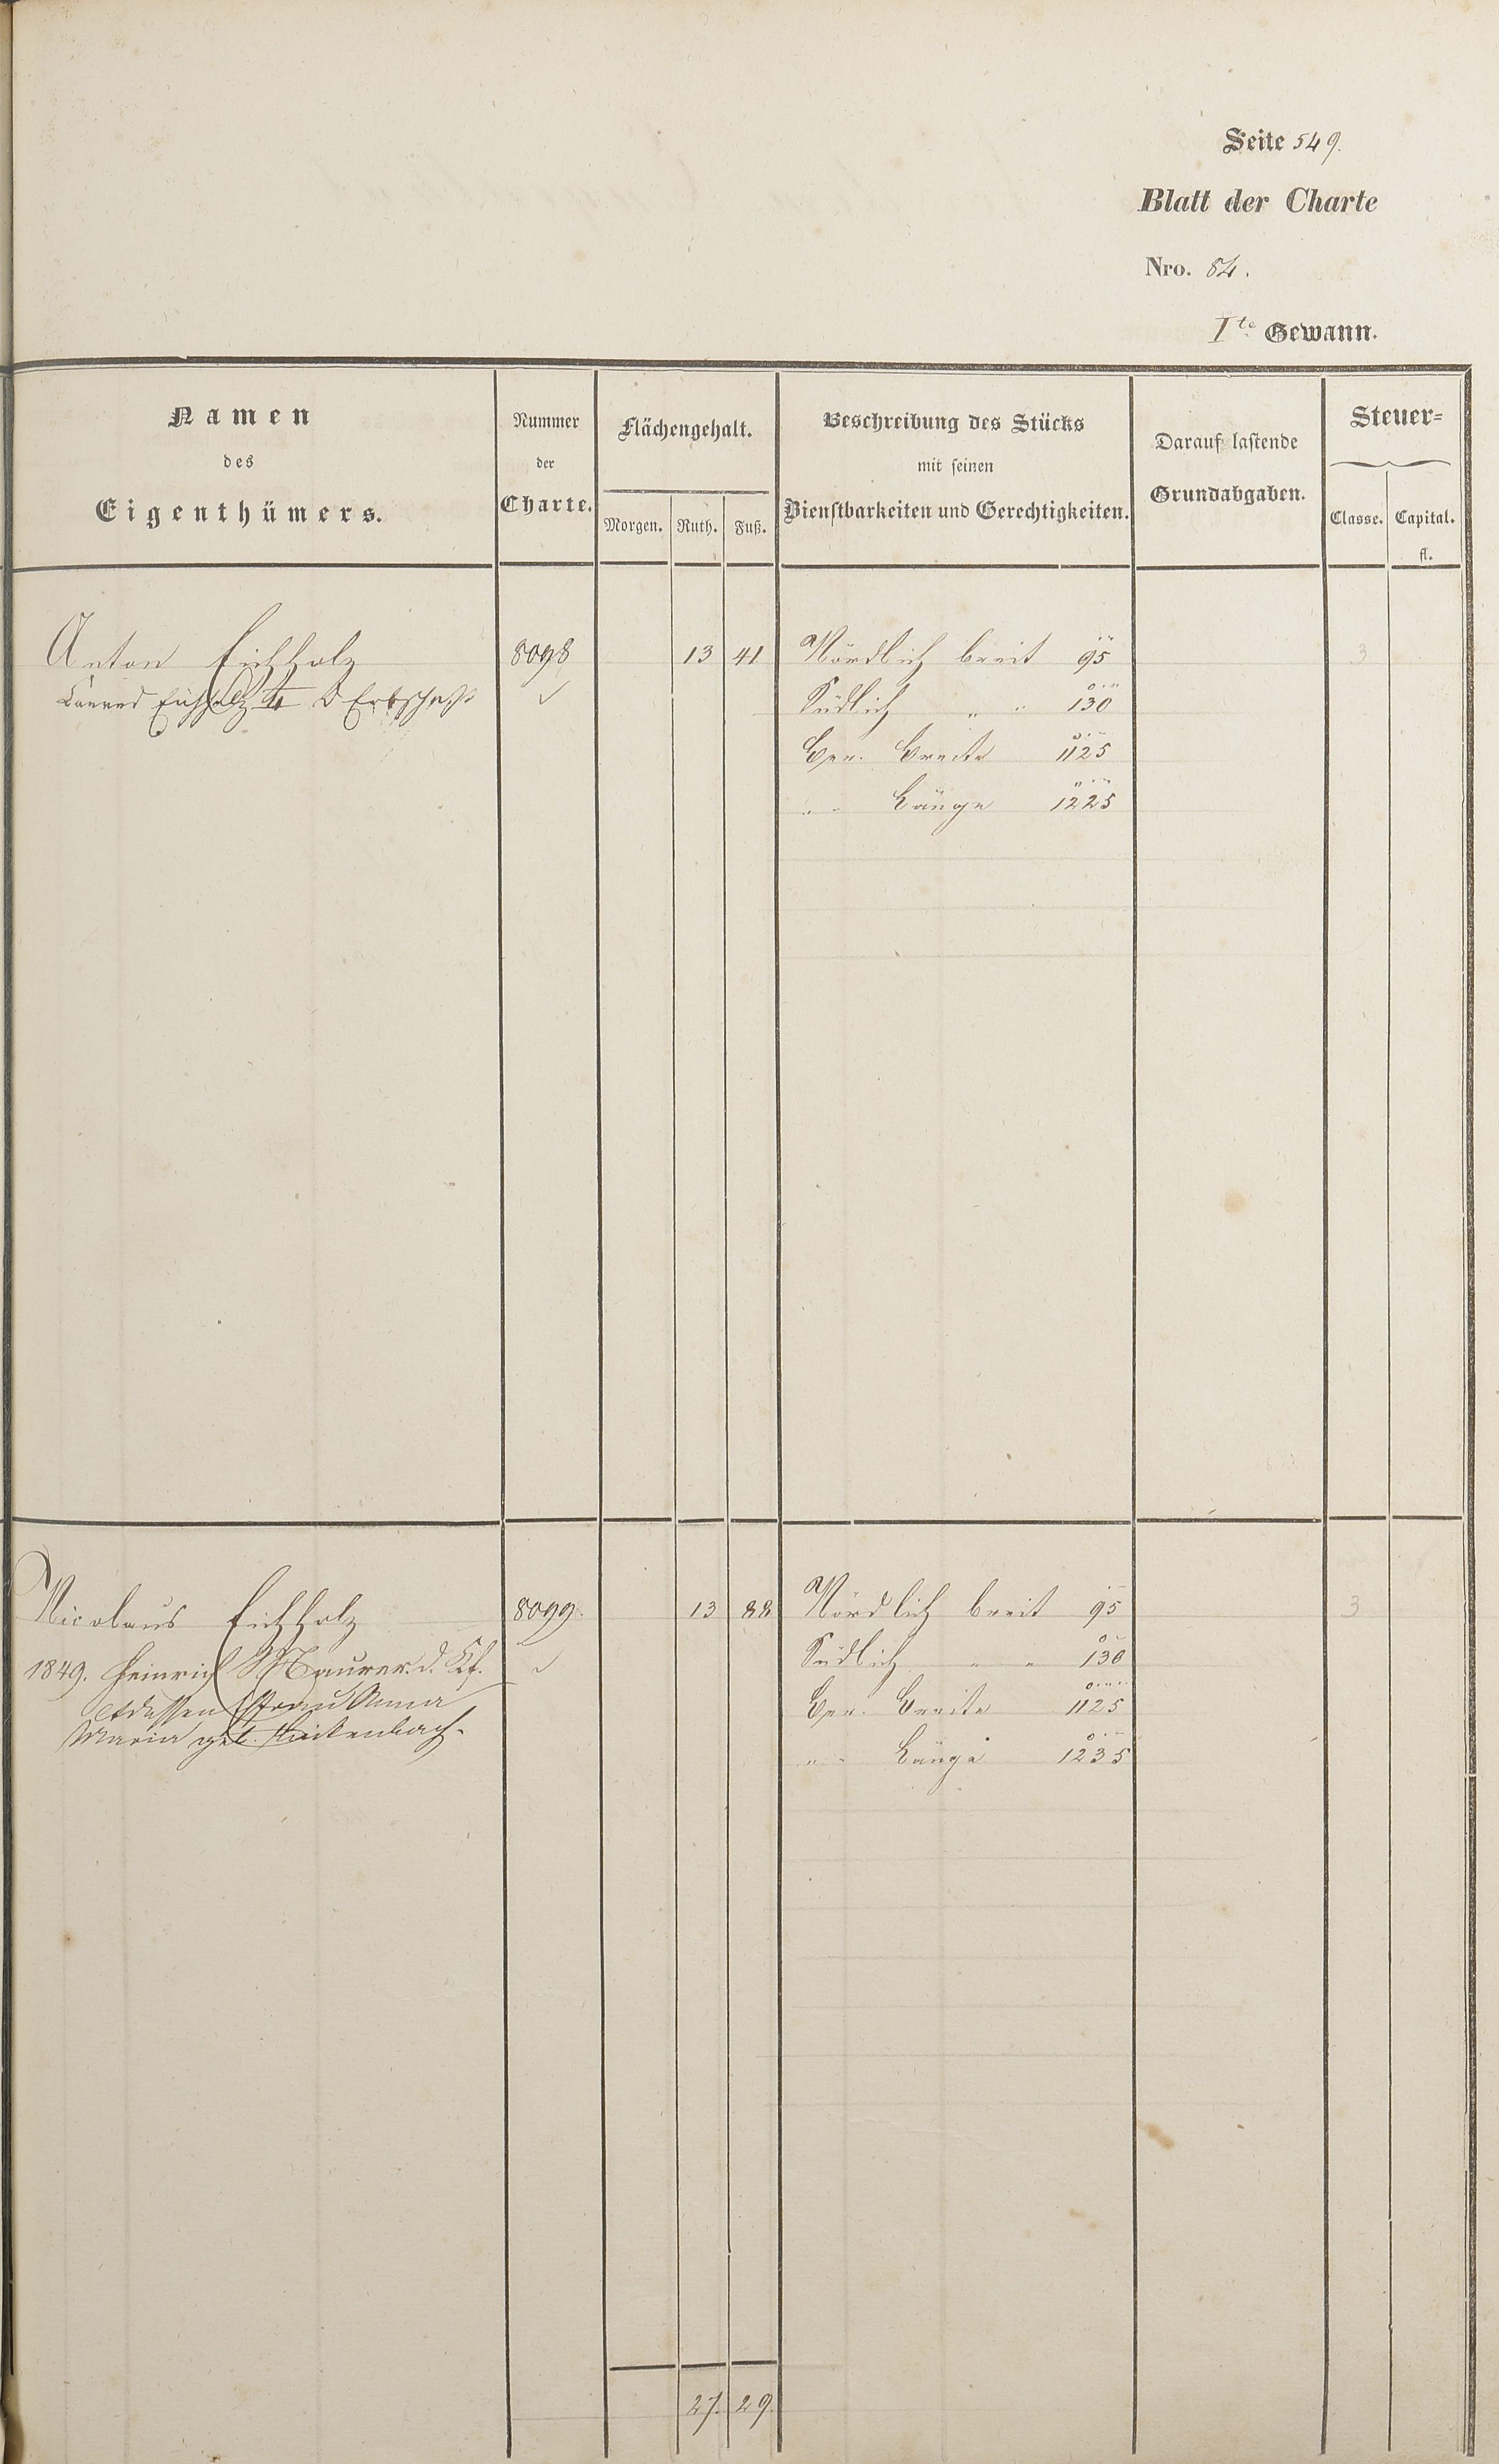 Seite 549.
Blatt der Charte
Nro. 84.
I^te Gewann.
Namen
des
Eigenthümers.
Nummer
der
Charte.
Flächengehalt.
Morgen. Ruth. Fuß.
Beschreibung des Stücks
mit seinen
Dienstbarkeiten und Gerechtigkeiten.
Darauf lastende
Grundabgaben.
Steuer-
Classe. Capital.
fl.
Anton Eichholz 8098 13 41 Nördlich breit 95 3
Conrad Eichholz d Erbschaft ✓ Südlich " " 130
Ger. Breite 1125
" " Länge 1225
Nicolaus Eichholz 8099. 13 88 Nördlich breit 95 3
1849. Heinrich Maurer d. Kf. ✓ Südlich " " 130
et dessen Frau Anna Ger. Breite 1125
Maria geb. " " Länge 1235
27. 29.